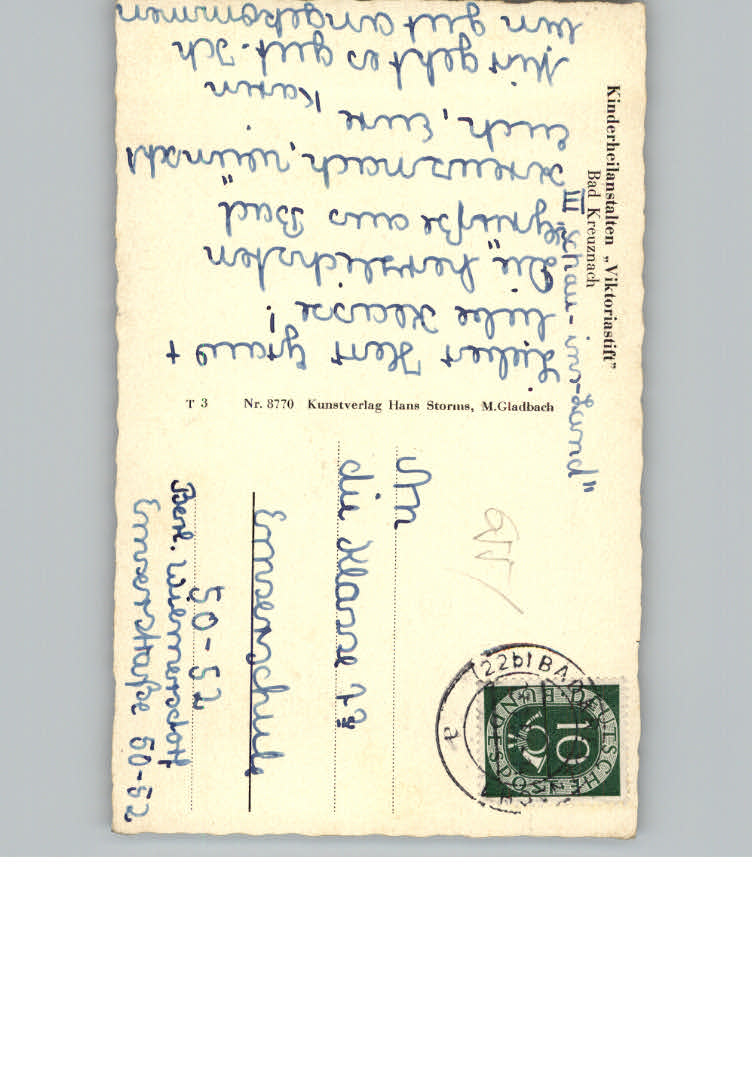 Kinderheilanstalten „Viktoriastift”
Bad Kreuznach
III „Schau-ins-Land"
Lieber Herr Graus +
liebe Klasse!
Die herzlichsten
Grüße aus Bad
Kreuznach, wünscht
euch, Eure Karin
Mir geht es gut. Ich
bin gut angekommen
T 3 Nr. 8770 Kunstverlag Hans Storms, M.Gladbach
An
die Klasse 7a
Emserschule
50-52
Berl. Wilmersdorf
Emserstraße 50-52
(22b) BAD
DEUTSCHE BUNDESPOST
10